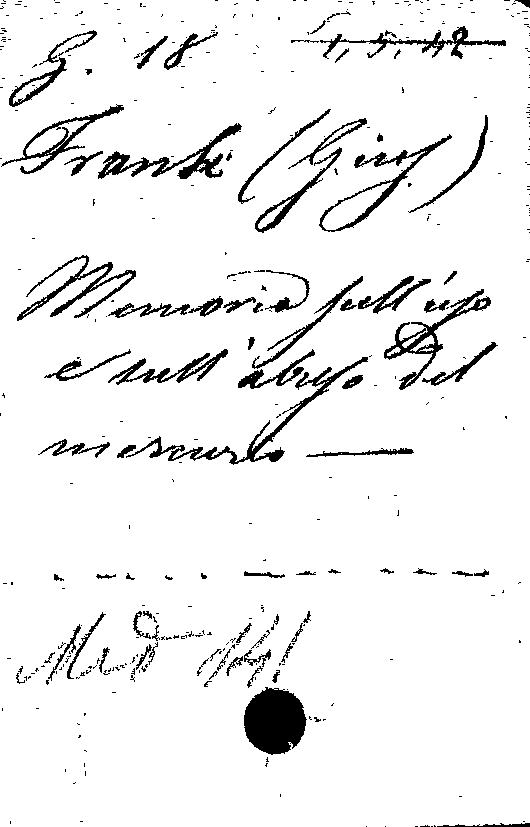 G. 18 1, 5, 42
Frank (Gius.)
Memoria sull'uso
e sull'abuso del
mercurio —
Med